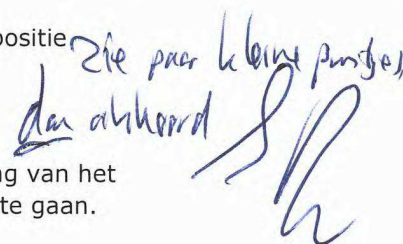 positie
zie paar kleine puntjes,
dan akkoord
ng van het
te gaan.